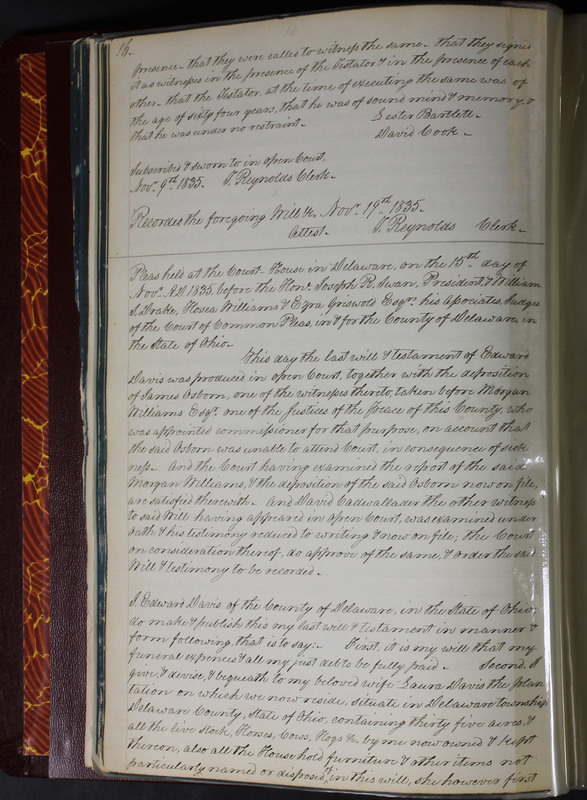 16.
presence – that they were called to witness the same – that they signed
it as witnesses in the presence of the Testator & in the presence of each
other – that the Testator at the time of executing the same was of
the age of sixty four years, that he was of sound mind & memory, &
that he was under no restraint. – Lester Bartlett –
David Cook –
Subscribed & sworn to in open Court,
Novr. 9th 1835. T. Reynolds Clerk. –
Recorded the foregoing Will &c. Novr. 19th 1835.
Attest. T. Reynolds Clerk –
Pleas held at the Court-House in Delaware, on the 15th day of
Novr. A.D. 1835, before the Honl. Joseph R. Swan, President, & William
S. Drake, Hosea Williams & Ezra Griswold Esqrs. his Associates, Judges
of the Court of Common Pleas, in & for the County of Delaware, in
the State of Ohio –
This day the last will & testament of Edward
Davis was produced in open Court, together with the deposition
of James Osborn, one of the witnesses thereto, taken before Morgan
Williams Esqr. one of the Justices of the Peace of this County, who
was appointed commissioner for that purpose, on account that
the said Osborn was unable to attend Court, in consequence of sick
ness – And the Court having examined the report of the said
Morgan Williams, & the deposition of the said Osborn now on file,
are satisfied therewith – And David Cadwallader the other witness
to said Will having appeared in open Court, was examined under
oath & his testimony reduced to writing & now on file; the Court
on consideration thereof, do approve of the same, & order the said
Will & testimony to be recorded –
I, Edward Davis of the County of Delaware, in the State of Ohio,
do make & publish this my last will & testament in manner &
form following, that is to say: – First, it is my will that my
funeral expences & all my just debts be fully paid – Second, I
give, & devise, & bequeath to my beloved wife Laura Davis the plan
tation on which we now reside, situate in Delaware township
Delaware County, State of Ohio, containing thirty five acres, &
all the live stock, Horses, Cows, Hogs &c. by me now owned & kept
thereon, also all the Household furniture & other items not
particularly named or disposed of in this will, she however first